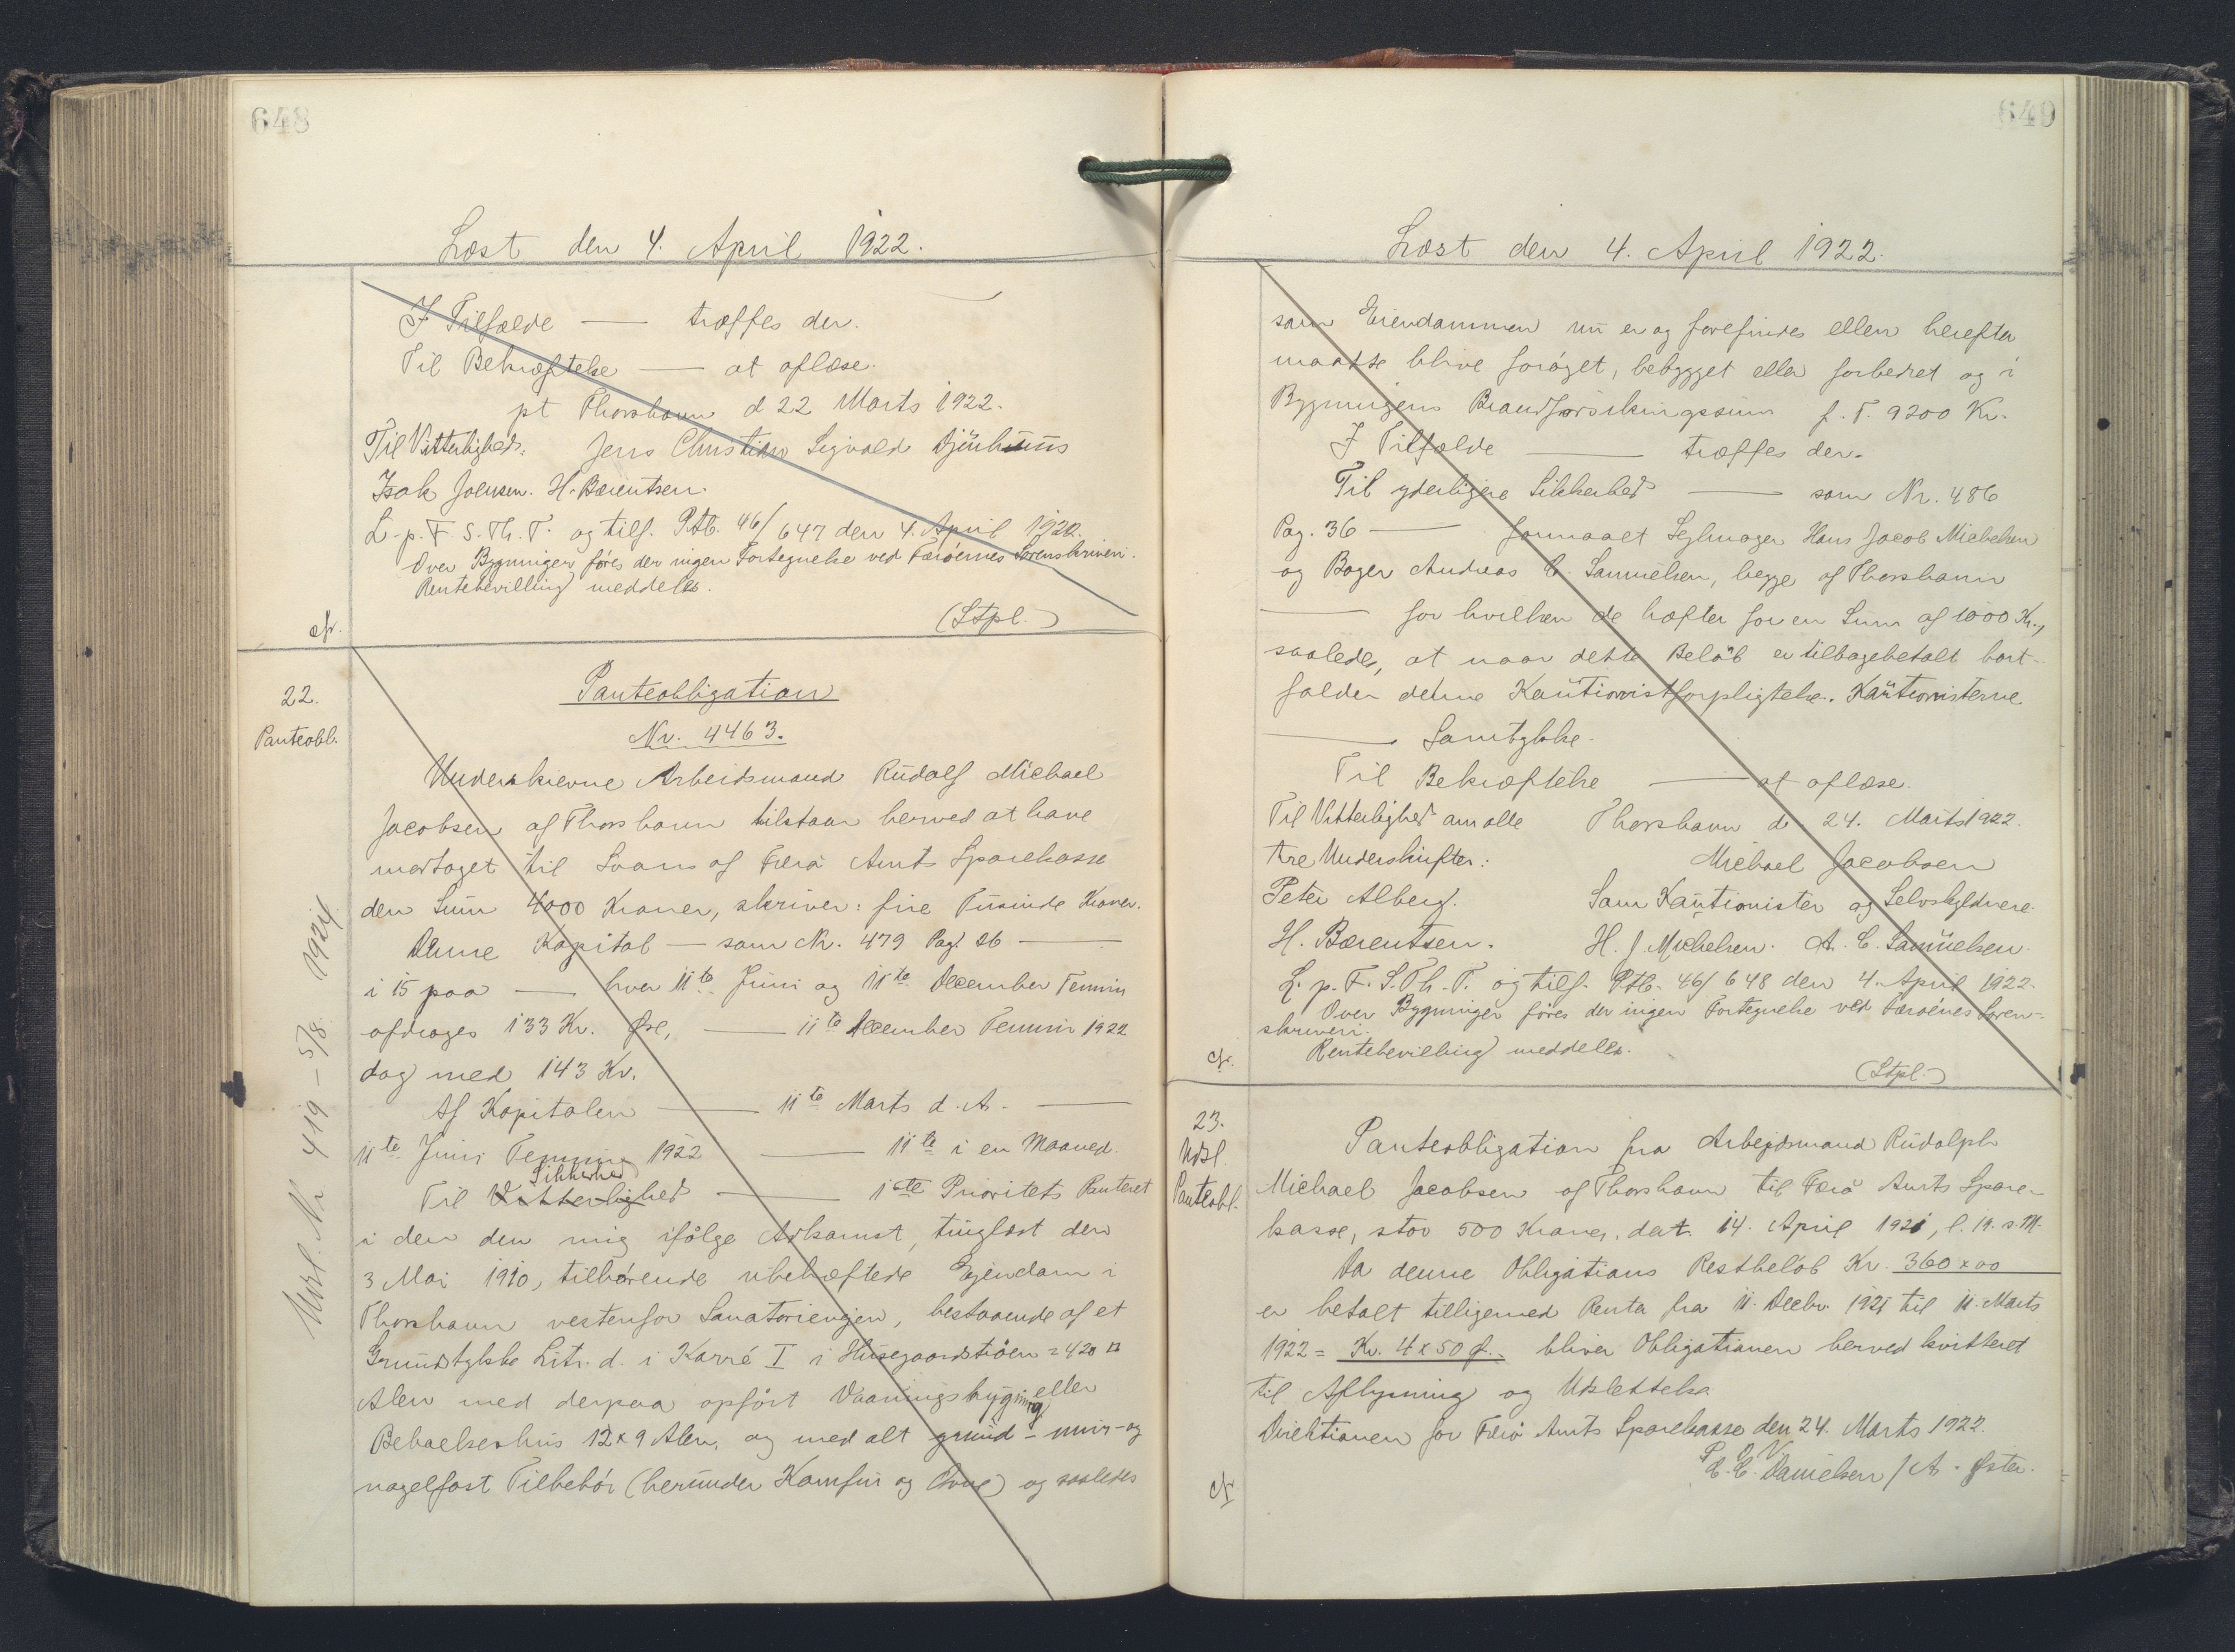 648
Læst den 4. April 1922.
I Tilfælde — træffes der.
Til Bekræftelse — at aflæse.
pt Thorshavn d 22 Marts 1922.
Til Vitterlighed: Jens Christian Sigvald Djurhuus
Isak Joensen. H. Bærentsen.
L. p. F. S. Th. T. og tilf. Ptb. 46/647 den 4. April 1922.
Over Bygninger føres der ingen Fortegnelse ved Færöernes Sorenskriveri.
Rentebevilling meddeles.
(Stpl.)
cfr.
22.
Panteobl.
Panteobligation
Nr. 4463.
Underskrevne Arbeidsmand Rudolf Michael
Jacobsen af Thorshavn tilstaar herved at have
modtaget til Laans af Færø Amts Sparekasse
den Sum 4000 Kroner, skriver: fire Tusinde Kroner.
Denne Kapital — som Nr. 479 Pag. 26 —
i 15 paa — hver 11te Juni og 11te December Termin
afdrages 133 Kr. Øre, — 11te December Termin 1922
dog med 143 Kr.
Af Kapitalen — 11te Marts d. A. —
11te Juni Termin 1922 — 11te i en Maaned.
Sikkerhed
Til Vitterlighed — 1ste Prioritets Panteret
i den den mig ifølge Adkomst, tinglæst den
3 Mai 1910, tilhørende ubehæftede Ejendom i
Thorshavn vestenfor Sanatoriengen, bestaaende af et
Grundstykke Litr. d. i Karré I i Husegaardstrøen = 420 □
Alen med derpaa opført Vaaningsbygning eller
Beboelseshus 12 x 9 Alen, og med alt grund- mur- og
nagelfast Tilbehør (herunder Komfur og Ovne) og saaledes
Udsl. Nr. 419 – 5/8 1924
649
Læst den 4. April 1922.
som Eiendommen nu er og forefindes eller herefter
maatte blive forøget, bebygget eller forbedret og i
Bygningens Brandforsikringssum f. T. 9200 Kr.
I Tilfælde — træffes der.
Til yderligere Sikkerhed — som Nr. 486
Pag. 36 — formaaet Sejlmager Hans Jacob Michelsen
og Bager Andreas C. Samuelsen, begge af Thorshavn
— for hvilken de hæfter for en Sum af 1000 Kr.,
saaledes, at naar dette Beløb er tilbagebetalt bort-
falder denne Kautionistforpligtelse. Kautionisterne
— Samtykke.
Til Bekræftelse — at aflæse.
Til Vitterlighed om alle Thorshavn d 24. Marts 1922.
tre Underskrifter: Michael Jacobsen
Peter Alberg. Som Kautionister og Selvskyldnere
H. Bærentsen. H. J. Michelsen. A. C. Samuelsen.
L. p. F. S. Th. T. og tilf. Ptb. 46/648 den 4. April 1922.
Over Bygninger føres der ingen Fortegnelse ved Færöernes Soren-
skriveri.
Rentebevilling meddeles.
(Stpl.)
cfr.
23.
Udsl.
Panteobl.
Panteobligation fra Arbejdsmand Rudolph
Michael Jacobsen af Thorshavn til Færø Amts Spare-
kasse, stor 500 Kroner, dat. 14. April 1921, l. 19. s. M.
Da denne Obligations Restbeløb Kr. 360 x 00
er betalt tilligemed Renter fra 11. Decbr. 1921 til 11. Marts
1922 = Kr. 4 x 50 Ø. bliver Obligationen herved kvitteret
til Aflysning og Udslettelse.
Direktionen for Færø Amts Sparekasse den 24. Marts 1922.
P. D. V.
C. C. Danielsen / A. Øster.
cfr